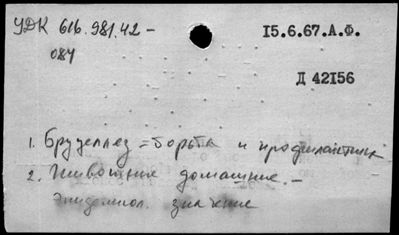 УДК 616.981.42 -
084
15.6.67.А.Ф.
Д 42156
1. Бруцеллез = борьба и профилактик
2. Животные домашние. -
Эпидемиол. значение